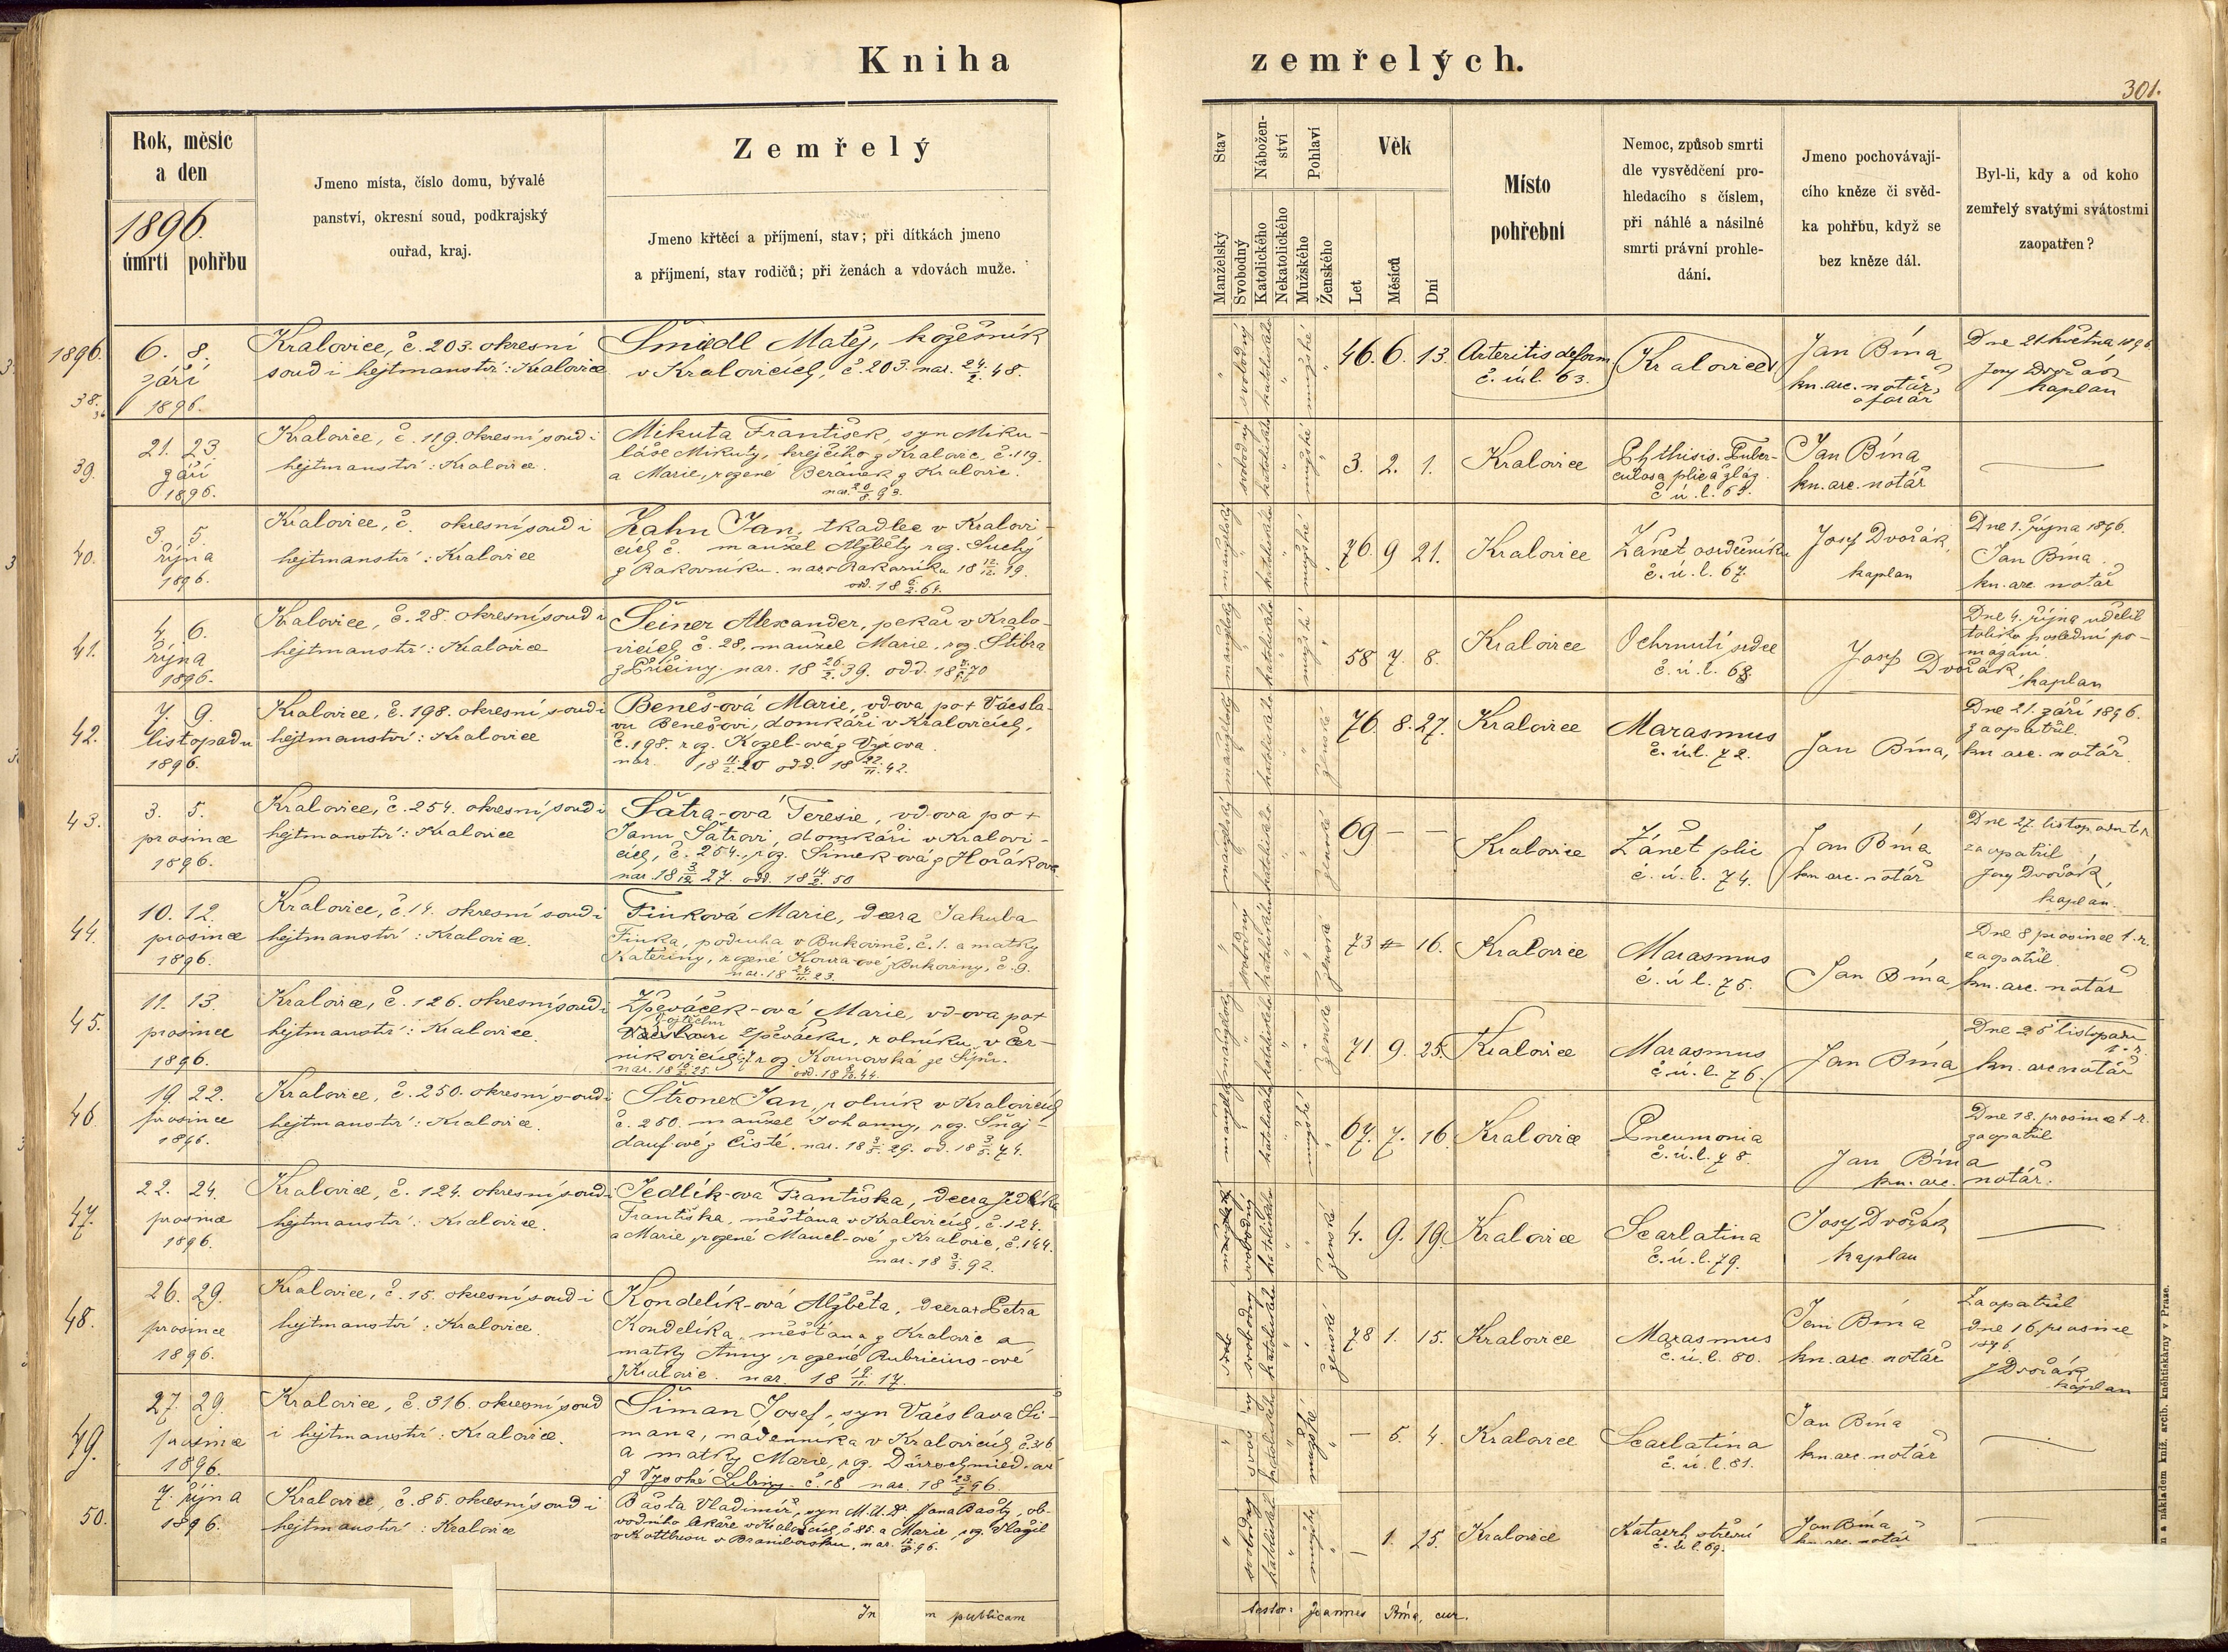 Kniha zemřelých.
301.
Rok, měsíc
a den
1896.
úmrtí pohřbu
Jmeno místa, číslo domu, bývalé
panství, okresní soud, podkrajský
ouřad, kraj.
Zemřelý
Jmeno křtěcí a příjmení, stav; při dítkách jmeno
a příjmení, stav rodičů; při ženách a vdovách muže.
Stav
Manželský
Svobodný
Nábožen-
ství
Katolického
Nekatolického
Pohlaví
Mužského
Ženského
Věk
Let
Měsíců
Dní
Místo
pohřební
Nemoc, způsob smrti
dle vysvědčení pro-
hledacího s číslem,
při náhlé a násilné
smrti právní prohle-
dání.
Jmeno pochovávají-
cího kněze či svěd-
ka pohřbu, když se
bez kněze dál.
Byl-li, kdy a od koho
zemřelý svatými svátostmi
zaopatřen?
1896.
38.
6. 8.
září
1896.
Kralovice, č. 203. okresní
soud i hejtmanství: Kralovice
Šmiedl Matěj, kožešník
v Kralovicích, č. 203. nar. 24/2. 48.
svobodný
katolického
mužské
46. 6. 13.
Arteritis deform.
č. ú. l. 63.
Kralovice
Jan Bína
kn. arc. notář,
a farář
Dne 21 května 1896
Josef Dvořák
kaplan
39.
21. 23.
září
1896.
Kralovice, č. 119. okresní soud i
hejtmanství: Kralovice.
Mikuta František, syn Miku-
láše Mikuty, krejčího z Kralovic, č. 119.
a Marie, rozené Beránek z Kralovic.
nar. 20/8. 93.
svobodný
katolického
mužské
3. 2. 1.
Kralovice
Phthisis. Tuber-
culosa plic a žláz
č. ú. l.
Jan Bína
kn. arc. notář
—
40.
3. 5.
října
1896.
Kralovice, č. okresní soud i
hejtmanství: Kralovice
Zahn Jan, tkadlec v Kralovi-
cích č. manžel Alžběty roz. Suchý
z Rakovníku. nar. v Rakovníku 18 12/12. 19.
odd. 18 64.
manželský
katolického
mužské
76. 9 21.
Kralovice
Zánět osrdečníku
č. ú. l. 67.
Josef Dvořák,
kaplan
Dne 1. října 1896.
Jan Bína
kn. arc. notář
41.
4. 6.
října
1896.
Kralovice, č. 28. okresní soud i
hejtmanství: Kralovice
Šeiner Alexander, pekař v Kralo-
vicích č. 28, manžel Marie, roz. Štibra
z Příčiny. nar. 18 26/2. 39. odd. 18 70
manželský
katolického
mužské
58 7. 8.
Kralovice
Ochrnutí srdce
č. ú. l. 68.
Josef Dvořák,
kaplan
Dne 4. října udělil
toliko poslední po-
mazání
42.
7. 9.
listopadu
1896.
Kralovice, č. 198. okresní soud i
hejtmanství: Kralovice
Beneš-ová Marie, vdova po + Václa-
vu Benešovi, domkáři v Kralovicích,
č. 198. roz. Kozel-ová z Výrova.
nar. 18 11/2. 20 odd. 18 22/11. 42.
manželský
katolického
ženské
76. 8. 27.
Kralovice
Marasmus
č. ú. l. 72.
Jan Bína,
Dne 21. září 1896.
zaopatřil.
kn. arc. notář.
43.
3. 5.
prosince
1896.
Kralovice, č. 254. okresní soud i
hejtmanství: Kralovice
Šatra-ová Teresie, vdova po +
Janu Šatrovi, domkáři v Kralovi-
cích, č. 254., roz. Šimek-ová z Hořákova
nar. 18 3/12 27. odd. 18 14/2. 50
manželský
katolického
ženské
69 — —
Kralovice
Zánět plic
č. ú. l. 74.
Jan Bína
kn. arc. notář
Dne 27. listopadu t. r.
zaopatřil
Josef Dvořák,
kaplan.
44.
10. 12.
prosince
1896.
Kralovice, č. 14. okresní soud i
hejtmanství: Kralovice.
Finková Marie, dcera Jakuba
Finka, podruha v Bukovině, č. 1. a matky
Kateřiny, rozené Koura-ové z Bukoviny, č. 9.
nar. 18 24/11. 23.
svobodný
katolického
ženské
73 # 16.
Kralovice
Marasmus
č. ú. l. 75.
Jan Bína,
Dne 8 prosince t. r.
zaopatřil
kn. arc. notář
45.
11. 13.
prosince
1896.
Kralovice, č. 126. okresní soud i
hejtmanství: Kralovice.
Zpěváček-ová Marie, vdova po +
Vojtěchu
Václavu Zpěváčku, rolníku v Čer-
nikovicích, roz. Kounovská ze Sýru.
nar. 18 25. odd. 18 44.
manželský
katolického
ženské
71 9. 25.
Kralovice
Marasmus
č. ú. l. 76.
Jan Bína,
Dne 25 listopadu
t. r.
kn. arc. notář
46.
19. 22.
prosince
1896.
Kralovice, č. 250. okresní soud i
hejtmanství: Kralovice.
Štroner Jan, rolník v Kralovicích
č. 250. manžel Johanny, roz. Šnaj-
dauf-ové z Čisté. nar. 18 29. od. 18 74.
manželský
katolického
mužské
67. 7. 16
Kralovice
Pneumonia
č. ú. l. 78.
Jan Bína
kn. arc. notář.
Dne 18. prosince t. r.
zaopatřil
47.
22. 24.
prosince
1896.
Kralovice, č. 124. okresní soud i
hejtmanství: Kralovice.
Jedlík-ová Františka, dcera Jedlíka
Františka, měšťana v Kralovicích, č. 124.
a Marie, rozené Mauel-ové z Kralovic, č. 144.
nar. 18 3/3. 92.
svobodný
katolického
ženské
4. 9. 19.
Kralovice
Scarlatina
č. ú. l. 79.
Josef Dvořák
kaplan
—
48.
26. 29.
prosince
1896.
Kralovice, č. 15. okresní soud i
hejtmanství: Kralovice.
Kondelík-ová Alžběta, dcera + Petra
Kondelíka, měšťana z Kralovic a
matky Anny, rozené Rubricius-ové
z Kralovic. nar. 18 11. 17.
svobodný
katolického
ženské
78 1. 15.
Kralovice
Marasmus
č. ú. l. 80.
Jan Bína
kn. arc. notář
Zaopatřil
dne 16 prosince
1896.
J Dvořák
kaplan
49.
27. 29.
prosince
1896.
Kralovice, č. 316. okresní soud
i hejtmanství: Kralovice.
Šiman Josef, syn Václava Ši-
mana, nádenníka v Kralovicích č. 316
a matky Marie, roz. Dürrschmied-ové
z Vysoké Libyně č. 18 nar. 18 23/7. 96.
katolického
mužské
— 5. 4.
Kralovice
Scarlatina
č. ú. l. 81.
Jan Bína
kn. arc. notář
—
50.
7. října
1896.
Kralovice, č. 85. okresní soud i
hejtmanství: Kralovice
Bašta Vladimír, syn M.U.Dr Jana Bašty, ob-
vodního lékaře v Kralovicích, č 85. a Marie, roz. Vlažil
v Kottbusu v Braniborsku, nar. 96.
svobodný
katolické
mužské
— 1. 25.
Kralovice
Katarrh střevní
č. ú. l. 69.
Jan Bína
kn. arc. notář
—
In publicam
testor: Joannes Bína, cur.
a nákladem kníž. arcib. kněhtiskárny v Praze.